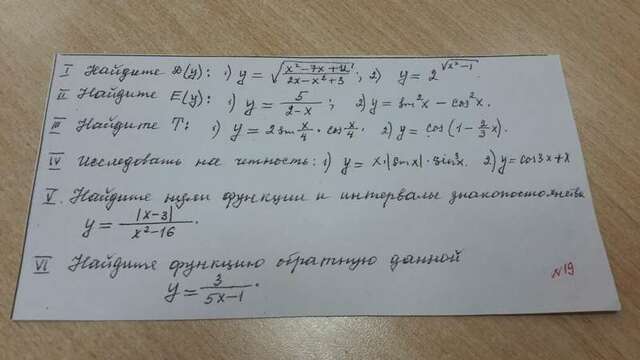 I Найдите D(y): 1) y = √((x²-7x+12)/(2x-x²+3)); 2) y = 2^√(x²-1).
II Найдите E(y): 1) y = 5/(2-x); 2) y = sin²x - cos²x.
III Найдите T: 1) y = 2 sin x/4 · cos x/4. 2) y = cos(1 - 2/3 x).
IV Исследовать на четность: 1) y = x·|sin x|·sin³x. 2) y = cos3x + x
V. Найдите нули функции и интервалы знакопостоянства
y = |x-3|/(x²-16).
VI Найдите функцию обратную данной
y = 3/(5x-1).
№19